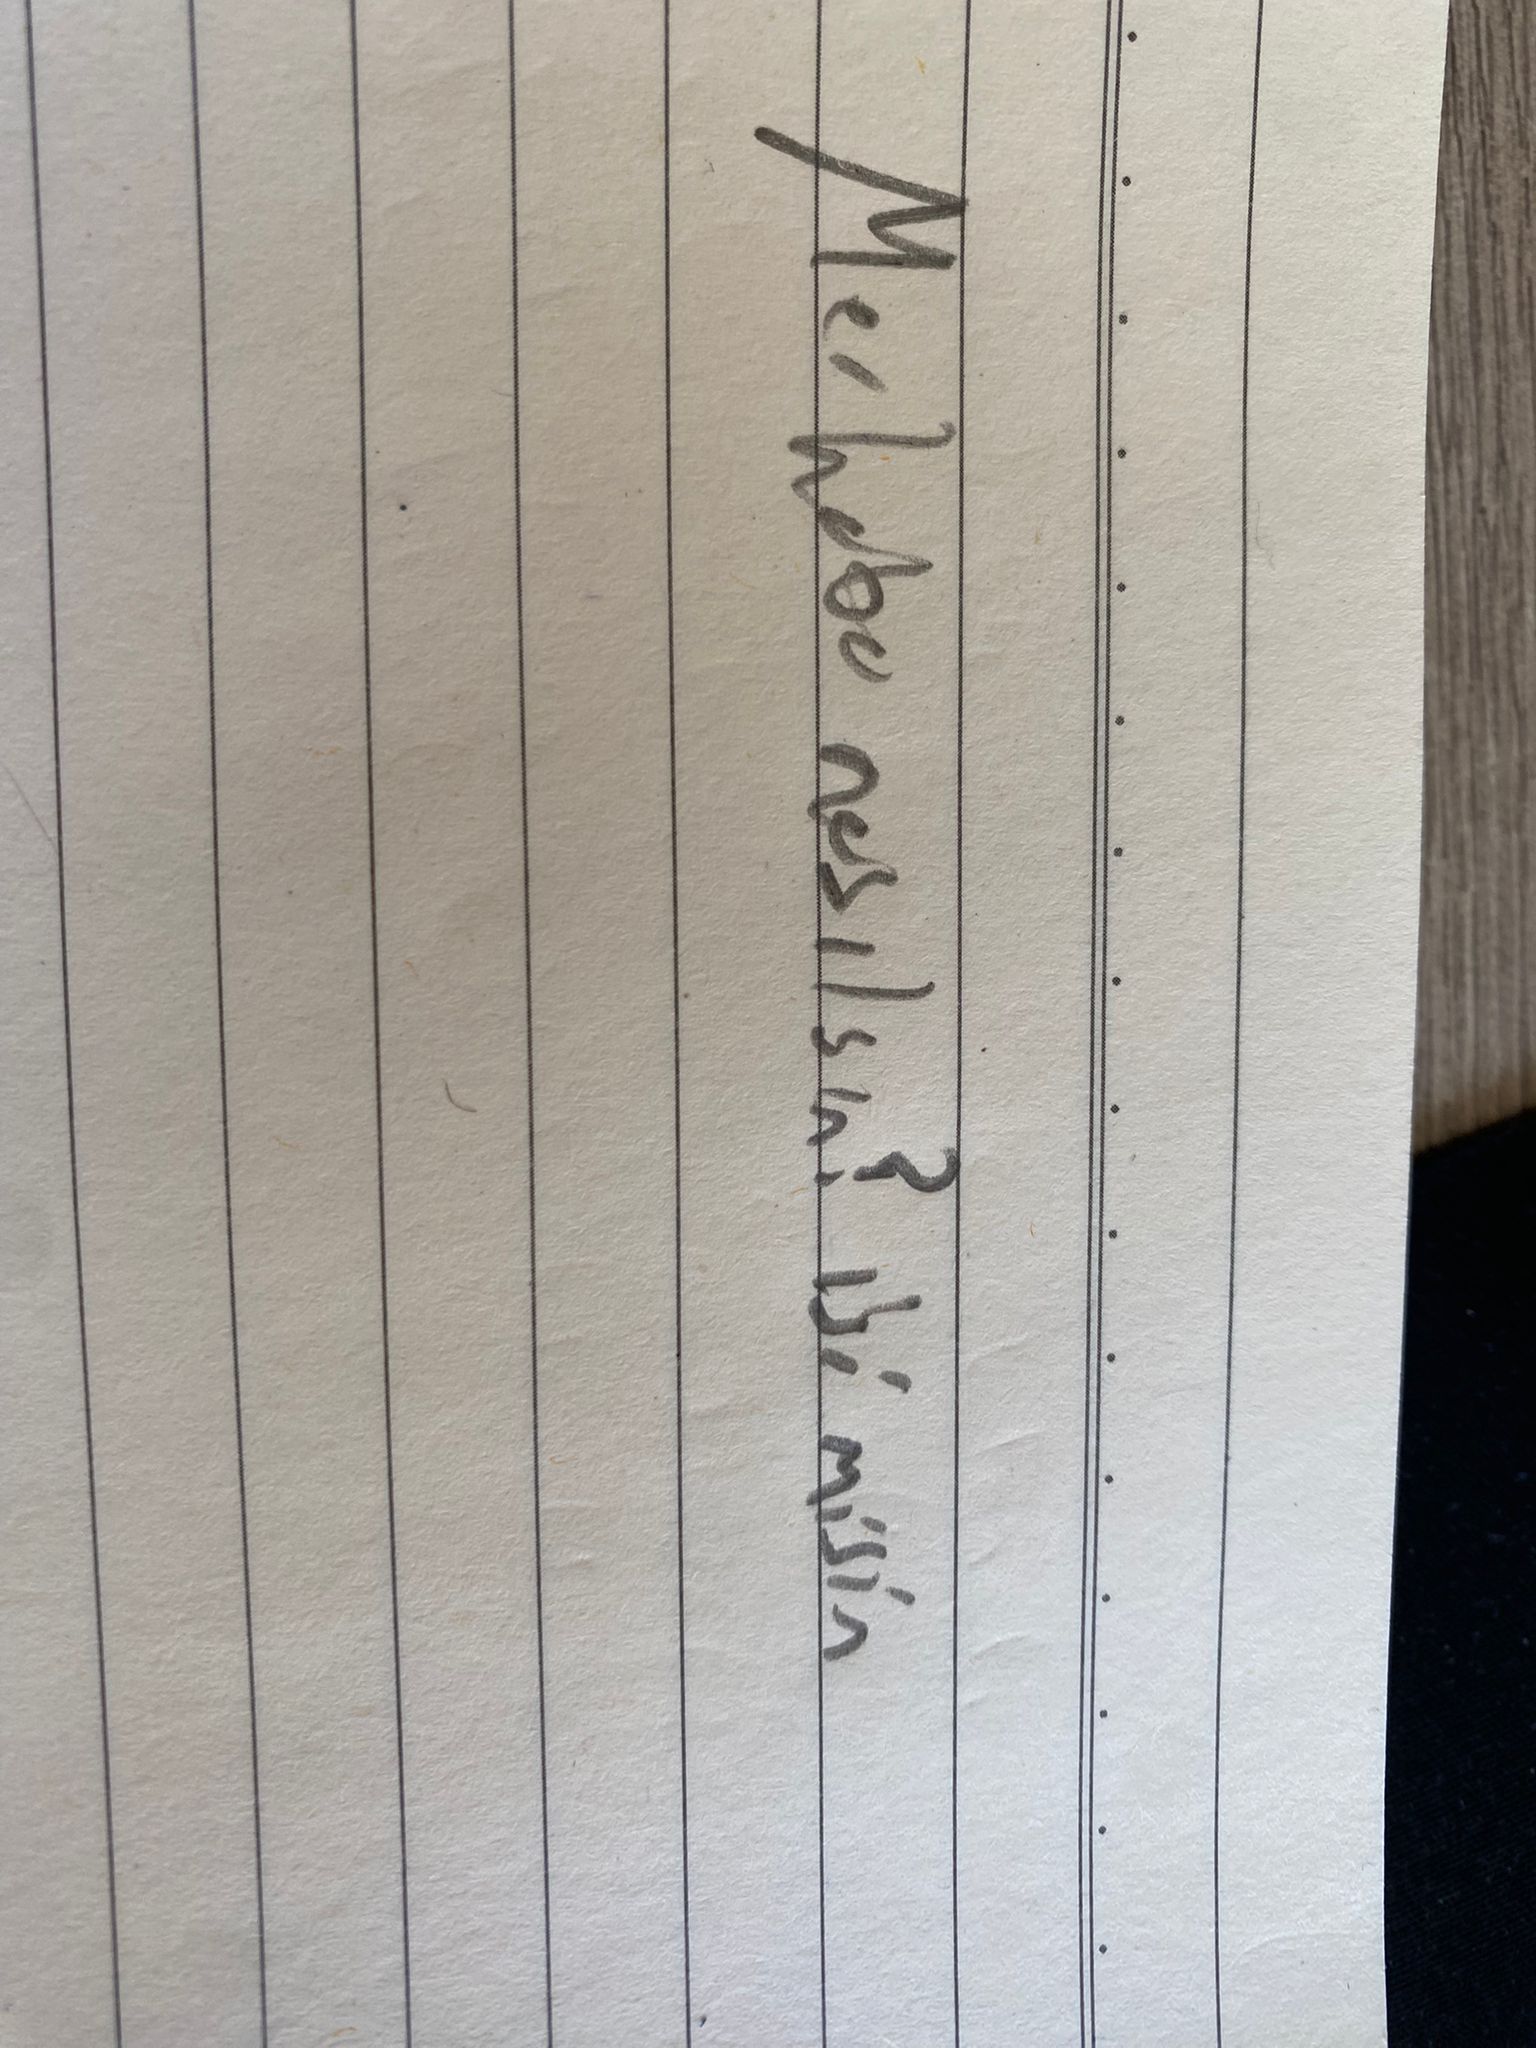 Merhaba nasılsın? iyi misin